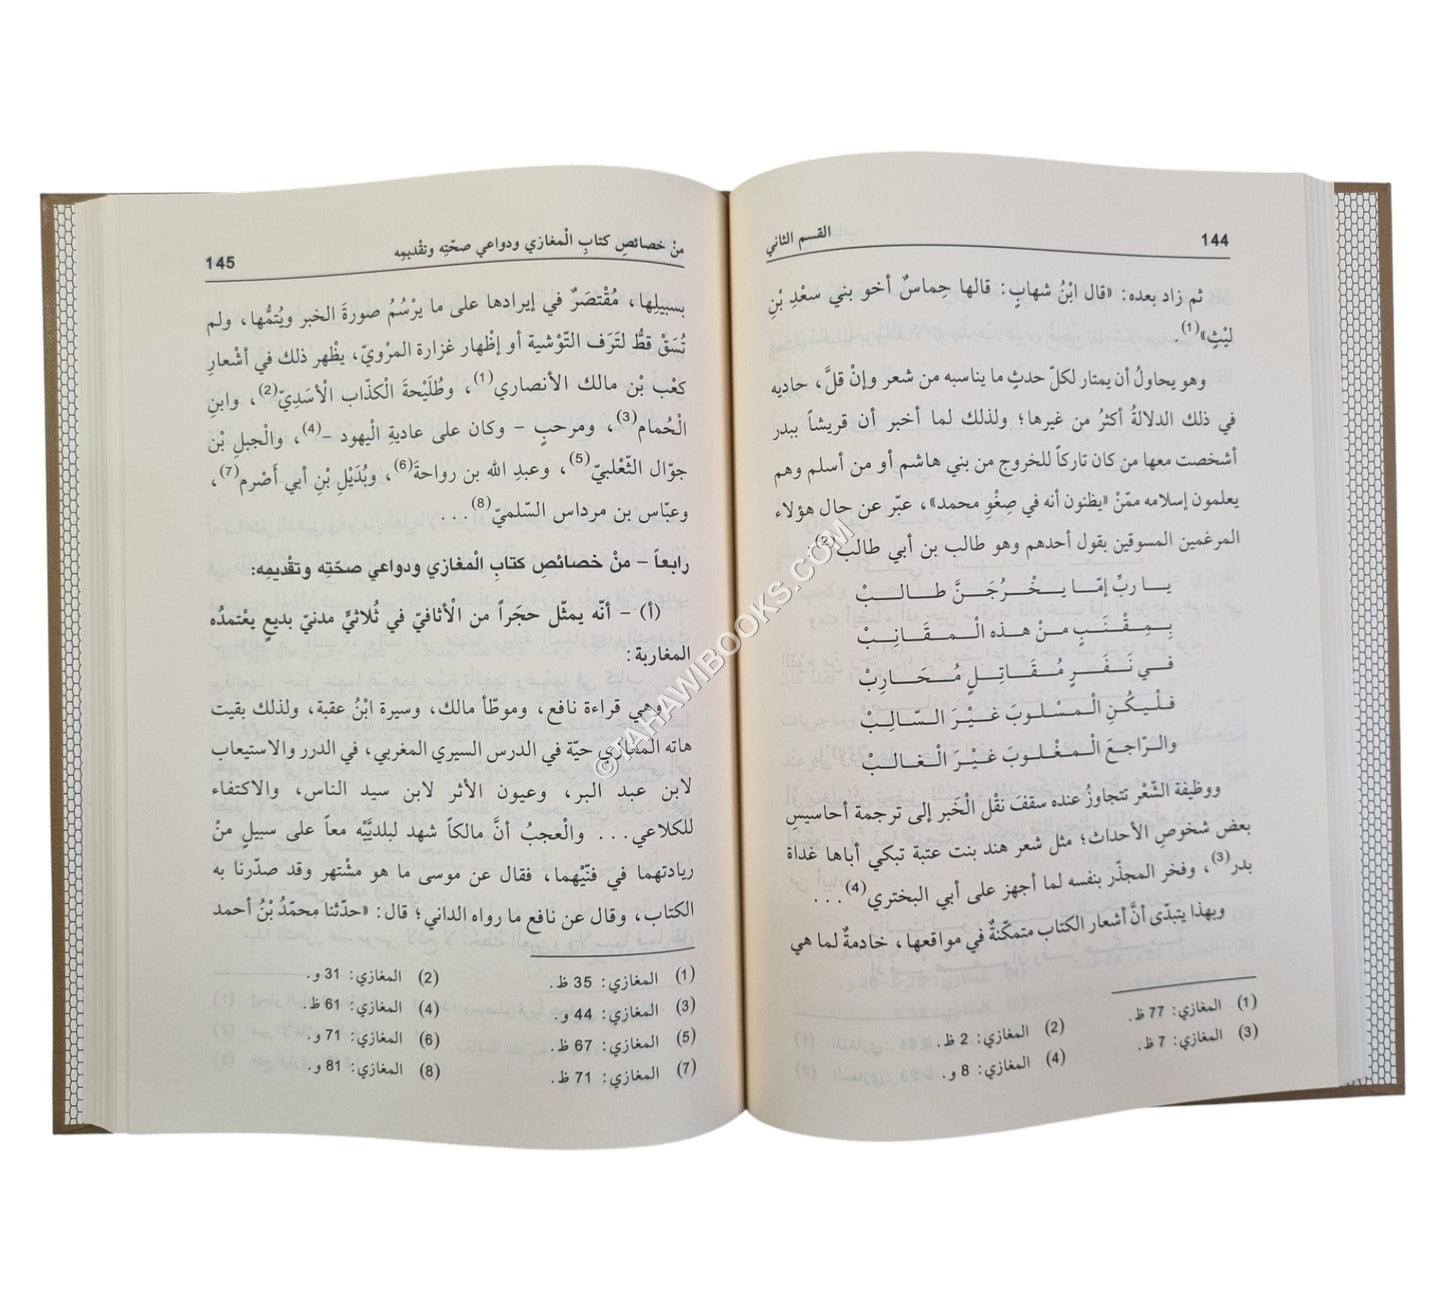 144
القسم الثاني
ثم زاد بعده: «قال ابْنُ شهابٍ: قالها حِماسٌ أخو بني سعْدِ بْنِ
ليْثٍ»(1).
وهو يحاولُ أن يمتار لكلّ حدثٍ ما يناسبه من شعر وإنْ قلَّ، حاديه
في ذلك الدلالةُ أكثرُ من غيرها؛ ولذلك لما أخبر أن قريشاً ببدر
أشخصت معها من كان تاركاً للخروج من بني هاشم أو من أسلم وهم
يعلمون إسلامه ممّنْ «يظنون أنه في صِغْوِ محمد»، عبّر عن حال هؤلاء
المرغمين المسوقين بقول أحدهم وهو طالب بن أبي طالب(2)
يـا ربِّ إمّـا يـخْـرُجَـنَّ طـالـبْ
بِـمِـقْـنَـبٍ مـنْ هـذه الْـمـقَـانِـبْ
فـي نَـفَـرٍ مُـقَـاتِـلٍ مُـحَـارِبْ
فـلْـيـكُـنِ الْـمـسْـلـوبَ غـيْـرَ الـسّـالِـبْ
والـرّاجـعَ الْـمـغْـلـوبَ غَـيْـرَ الْـغـالـبْ
ووظيفة الشّعْر تتجاوزُ عنده سقفَ نقْل الْخَبر إلى ترجمة أحاسيسِ
بعض شخوصِ الأحداث؛ مثل شعر هند بنت عتبة تبكي أباها غداة
بدر(3)، وفخر المجذّر بنفسه لما أجهز على أبي البختري(4)...
وبهذا يتبدّى أنَّ أشعار الكتاب متمكّنةٌ في مواقعها، خادمةٌ لما هي
(1) المغازي: 77 ظ.
(2) المغازي: 2 ظ.
(3) المغازي: 7 ظ.
(4) المغازي: 8 و.
منْ خصائصِ كتابِ الْمغازي ودواعي صحّتِه وتقْديمِه
145
بسبيلِها، مُقْتصَرٌ في إيرادها على ما يرْسُمُ صورةَ الخبر ويُتمُّها، ولم
تُسَقْ قطُّ لتَرَف التّوْشية أو إظْهار غزارة المرْويّ، يظْهر ذلك في أشْعارِ
كعْب بْن مالك الأنصاري(1)، وطُلَيْحةَ الْكذّاب الْأسَدِيّ(2)، وابنِ
الْحُمام(3)، ومرحبٍ – وكان على عاديةِ الْيهود –(4)، والْجبلِ بْن
جوّال الثّعْلبيّ(5)، وعبدِ الله بن رواحةَ(6)، وبُدَيْلِ بْنِ أبي أَصْرم(7)،
وعبّاس بن مرداس السّلميّ(8)...
رابعاً – منْ خصائصِ كتابِ الْمغازي ودواعي صحّتِه وتقْديمِه:
(أ) – أنّه يمثّل حجَراً من الْأثافيّ في ثُلاثيٍّ مدنيّ بديعٍ يعْتمدُه
المغاربة:
وهي قراءة نافع، وموطّأ مالك، وسيرة ابْنُ عقبة، ولذلك بقيت
هاته المغازي حيّة في الدرس السيري المغربي، في الدرر والاستيعاب
لابن عبد البر، وعيون الأثر لابن سيد الناس، والاكتفاء
للكلاعي... والْعجبُ أنَّ مالكاً شهد لبلديَّيْه معاً على سبيلٍ منْ
ريادتهما في فنّيْهما، فقال عن موسى ما هو مشْتهر وقد صدّرنا به
الكتاب، وقال عن نافع ما رواه الداني؛ قال: «حدّثنا مِحمّدُ بْنُ أحمد
(1) المغازي: 35 ظ.
(2) المغازي: 31 و.
(3) المغازي: 44 و.
(4) المغازي: 61 ظ.
(5) المغازي: 67 ظ.
(6) المغازي: 71 و.
(7) المغازي: 71 ظ.
(8) المغازي: 81 و.
©TARAWIBOOKS.COM